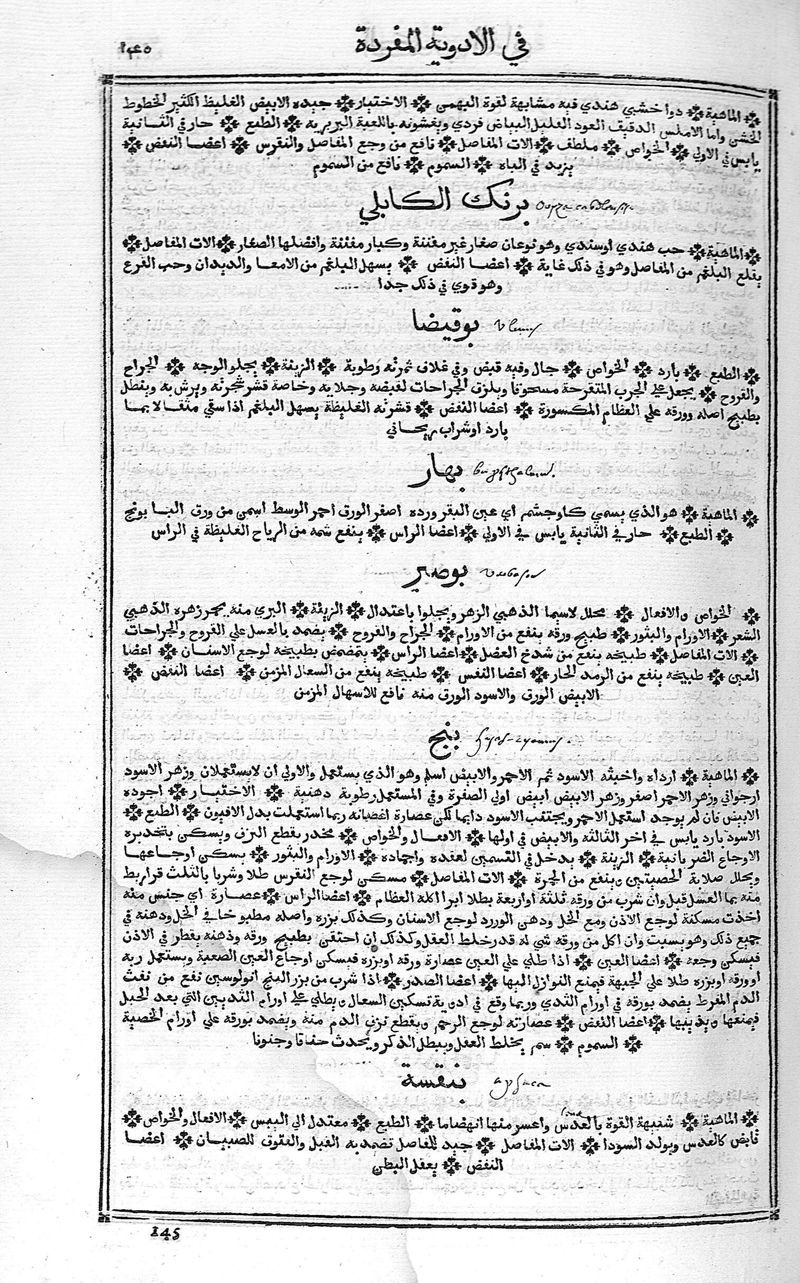 في الادوية المفردة ١٤٥
الماهية دوا خشبي هندي فيه مشابهة لقوة البهمن الاختيار جيده الابيض الغليظ الكثير الخطوط
الخشن واما الاملس الدقيق العود القليل البياض فردي ويغشونه باللعبة البربرية الطبع حار في الثانية
يابس في الاولي الخواص ملطف الات المفاصل نافع من وجع المفاصل والنقرس اعضا النفض
يزيد في الباه السموم نافع من السموم
برنك الكابلي
الماهية حب هندي اوسندي وهو نوعان صغار غير مفتتة وكبار مفتتة وافضلها الصغار الات المفاصل
يقلع البلغم من المفاصل وهو في ذلك غاية اعضا النفض يسهل البلغم من الامعا والديدان وحب القرع
وهو قوي في ذلك جدا
بوقيضا Ulmus
الطبع بارد الخواص جال وفيه قبض وفي غلاف ثمرته رطوبة الزينة يجلو الوجه الجراح
والقروح يجعل علي الجرب المتقرحة مسحوقا ويلزق الجراحات لقبضه وجلايه وخاصة قشر شجرته ويرش به وينطل
بطبيخ اصله وورقه علي العظام المكسورة اعضا النفض قشرته الغليظة يسهل البلغم اذا سقي مثقالا بما
بارد او شراب ريحاني
بهار buphthalmum.
الماهية هو الذي يسمي كاوجشم اي عين البقر ورده اصفر الورق احمر الوسط اسمن من ورق البا بونج
الطبع حار في الثانية يابس في الاولي اعضا الراس ينفع شمه من الرياح الغليظة في الراس
بوصير
الخواص والافعال محلل لاسيما الذهبي الزهر ويجلوا باعتدال الزينة البري منه يحمر زهره الذهبي
الشعر الاورام والبثور طبيخ ورقه ينفع من الاورام الجراح والقروح يضمد بالعسل علي القروح والجراحات
الات المفاصل طبيخه ينفع من شدخ العضل اعضا الراس يتمضمض بطبيخه لوجع الاسنان اعضا
العين طبيخه ينفع من الرمد الحار اعضا النفس طبيخه ينفع من السعال المزمن اعضا النفض
الابيض الورق والاسود الورق منه نافع للاسهال المزمن
بنج
الماهية ارداه واخبثه الاسود ثم الاحمر والابيض اسلم وهو الذي يستعمل والاولي ان لايستعملان وزهر الاسود
ارجواني وزهر الاحمر اصفر وزهر الابيض ابيض اولي الصفرة وفي المستعمل رطوبة دهنية الاختيار اجوده
الابيض فان لم يوجد استعمل الاحمر ويجتنب الاسود دايما لكن عصارة اغصانه ربما استعملت بدل الافيون الطبع
الاسود بارد يابس في اخر الثالثه والابيض في اولها الافعال والخواص مخدر يقطع النزف ويسكن بتخديره
الاوجاع الضربانية الزينة يدخل في التسمين لعقده واجماده الاورام والبثور يسكن اوجاعها
ويحلل صلابة الخصيتين وينفع من الجمرة الات المفاصل مسكن لوجع النقرس طلا وشربا بالثلث قراريط
منه بما العسل قيل وان شرب من ورقه ثلثة اواربعة بطلا ابرا اكله العظام اعضا الراس عصارة اي جنس منه
اخذت مسكنة لوجع الاذن ومع الخل ودهن الورد لوجع الاسنان وكذلك بزره واصله مطبوخا في الخل ودهنه في
جميع ذلك وهو يسبت وان اكل من ورقه شي له قدر خلط العقل وكذلك ان احتقن بطبيخ ورقه ودهنه يقطر في الاذن
فيسكن وجعه اعضا العين اذا طلي علي العين عصارة ورقه اوبزره فيسكن اوجاع العين الصعبة ويستعمل ربه
اوورقه اوبزره طلا علي الجبهة فيمنع النوازل اليها اعضا الصدر اذا شرب من بزر البنج انولوسين نفع من نفث
الدم المفرط يضمد بورقه في اورام الثدي وربما وقع في ادوية تسكين السعال ويطلي علي اورام الثديين التي بعد الحبل
فيمنعها ويذيبها اعضا النفض عصارته لوجع الرحم ويقطع نزف الدم منه ويضمد بورقه علي اورام الخصية
السموم سم يخلط العقل ويبطل الذكر ويحدث خناقا وجنونا
بنقسة aphaca
الماهية شبيهة القوة بالعدس واعسر منها انهضاما الطبع معتدل الي اليبس الافعال والخواص
قابض كالعدس ويولد السودا الات المفاصل جيد للمفاصل تضمد به القيل والفتوق للصبيان اعضا
النفض يعقل البطن
145